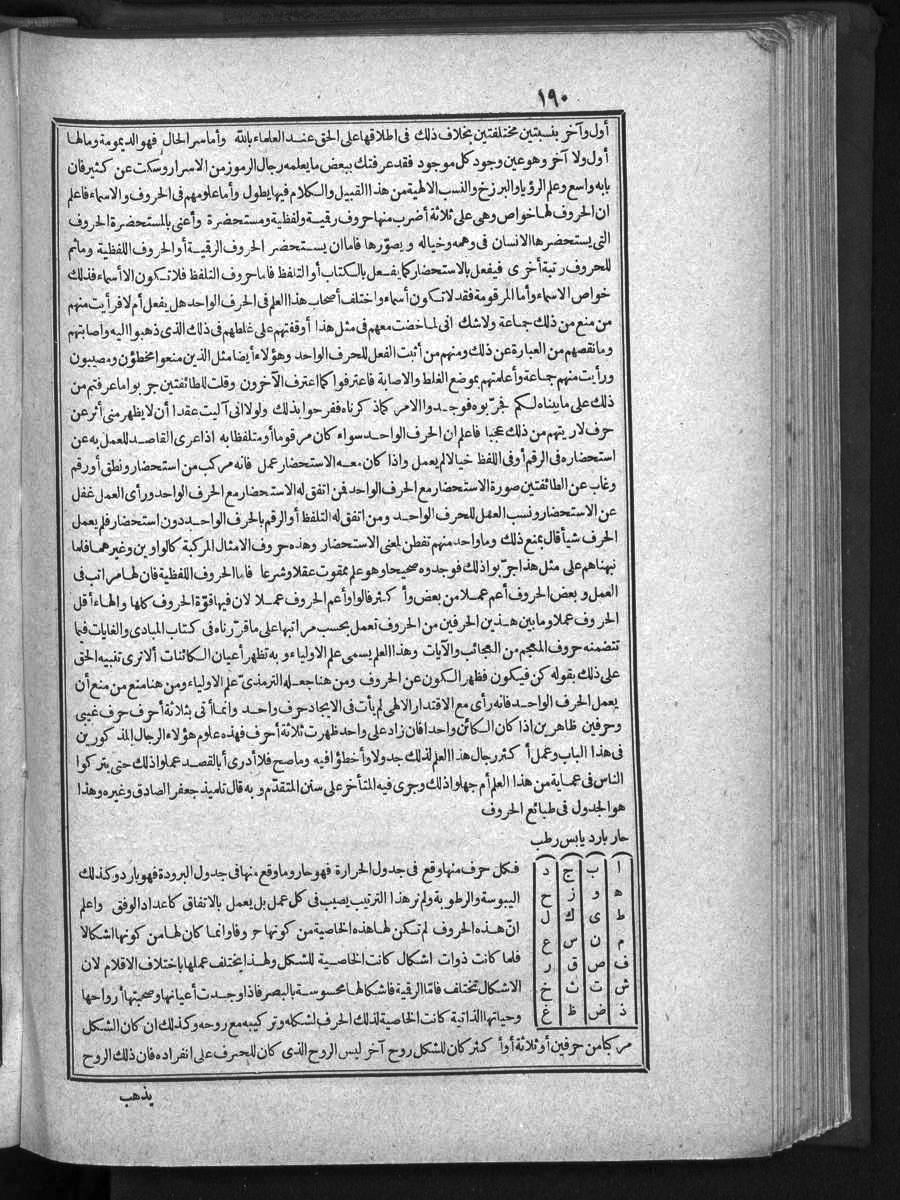 ١٩٠
أول وآخر بنسبتين مختلفتين بخلاف ذلك فى اطلاقها على الحق عند العلماء بالله وأما سر الحال فهو الديمومة وما لها
أول ولا آخر وهو عين وجود كل موجود فقد عرفتك ببعض ما يعلمه رجال الرموز من الاسرار وسكت عن كثير فان
بابه واسع وعلم الرؤيا والبرزخ والنسب الالهية من هذا القبيل والكلام فيها يطول وأما علومهم فى الحروف والاسماء فاعلم
ان الحروف لها خواص وهى على ثلاثة أضرب منها حروف رقمية ولفظية ومستحضرة وأعنى بالمستحضرة الحروف
التى يستحضرها الانسان فى وهمه وخياله ويصوّرها فاما ان يستحضر الحروف الرقمية أو الحروف اللفظية وماثم
للحروف رتبة أخرى فيفعل بالاستحضار كما يفعل بالكتاب أو التلفظ فاما حروف التلفظ فلا تكون الا أسماء فذلك
خواص الاسماء وأما المرقومة فقد لا تكون أسماء واختلف أصحاب هذا العلم فى الحرف الواحد هل يفعل أم لا فرأيت منهم
من منع من ذلك جماعة ولاشك انى لما خضت معهم فى مثل هذا أوقفتهم على غلطهم فى ذلك الذى ذهبوا اليه واصابتهم
وما نقصهم من العبارة عن ذلك ومنهم من أثبت الفعل للحرف الواحد وهؤلاء أيضا مثل الذين منعوا مخطؤن ومصيبون
ورأيت منهم جماعة وأعلمتهم بموضع الغلط والاصابة فاعترفوا كما اعترف الآخرون وقلت للطائفتين جربوا ما عرفتم من
ذلك على ما بيناه لكم فجرّبوه فوجدوا الامر كما ذكرناه ففرحوا بذلك ولولا انى آليت عقدا أن لا يظهر منى أثر عن
حرف لاريتهم من ذلك عجبا فاعلم ان الحرف الواحد سواء كان مرقوما أو متلفظا به اذا عرى القاصد للعمل به عن
استحضاره فى الرقم أو فى اللفظ خيالا لم يعمل واذا كان معه الاستحضار عمل فانه مركب من استحضار ونطق أو رقم
وغاب عن الطائفتين صورة الاستحضار مع الحرف الواحد فمن اتفق له الاستحضار مع الحرف الواحد ورأى العمل غفل
عن الاستحضار ونسب العمل للحرف الواحد ومن اتفق له التلفظ أو الرقم بالحرف الواحد دون استحضار فلم يعمل
الحرف شيأ قال بمنع ذلك وما واحد منهم تفطن لمعنى الاستحضار وهذه حروف الامثال المركبة كالواوين وغيرهما فلما
نبهناهم على مثل هذا جرّبوا ذلك فوجدوه صحيحا وهو علم ممقوت عقلا وشرعا فاما الحروف اللفظية فان لها مراتب فى
العمل وبعض الحروف أعم عملا من بعض وأكثر فالواو أعم الحروف عملا لان فيها قوّة الحروف كلها والهاء أقل
الحروف عملا وما بين هذين الحرفين من الحروف تعمل بحسب مراتبها على ما قرّرناه فى كتاب المبادى والغايات فيما
تتضمنه حروف المعجم من العجائب والآيات وهذا العلم يسمى علم الاولياء وبه تظهر أعيان الكائنات ألا ترى تنبيه الحق
على ذلك بقوله كن فيكون فظهر الكون عن الحروف ومن هنا جعله الترمذىّ علم الاولياء ومن هنا منع من منع أن
يعمل الحرف الواحد فانه رأى مع الاقتدار الالهى لم يأت فى الايجاد حرف واحد وانما أتى بثلاثة أحرف حرف غيبى
وحرفين ظاهرين اذا كان الكائن واحدا فان زاد على واحد ظهرت ثلاثة أحرف فهذه علوم هؤلاء الرجال المذكورين
فى هذا الباب وعمل أكثر رجال هذا العلم لذلك جدولا وأخطؤا فيه وما صح فلا أدرى أبالقصد عملوا ذلك حتى يتركوا
الناس فى عماية من هذا العلم أم جهلوا ذلك وجرى فيه المتأخر على سنن المتقدّم وبه قال تلميذ جعفر الصادق وغيره وهذا
هو الجدول فى طبائع الحروف
حار بارد يابس رطب
ا ب ج د
ه و ز ح
ط ى ك ل
م ن س ع
ف ص ق ر
ش ت ث خ
ذ ض ظ غ
فكل حرف منها وقع فى جدول الحرارة فهو حار وما وقع منها فى جدول البرودة فهو بارد وكذلك
اليبوسة والرطوبة ولم نر هذا الترتيب يصيب فى كل عمل بل يعمل بالاتفاق كاعداد الوفق واعلم
انّ هذه الحروف لم تكن لها هذه الخاصية من كونها حروفا وانما كان لها من كونها اشكالا
فلما كانت ذوات اشكال كانت الخاصية للشكل ولهذا يختلف عملها باختلاف الاقلام لان
الاشكال تختلف فامّا الرقمية فاشكالها محسوسة بالبصر فاذا وجدت أعيانها وصحبتها أرواحها
وحياتها الذاتية كانت الخاصية لذلك الحرف لشكله وتركيبه مع روحه وكذلك ان كان الشكل
مركبا من حرفين أو ثلاثة أو أكثر كان للشكل روح آخر ليس الروح الذى كان للحرف على انفراده فان ذلك الروح
يذهب